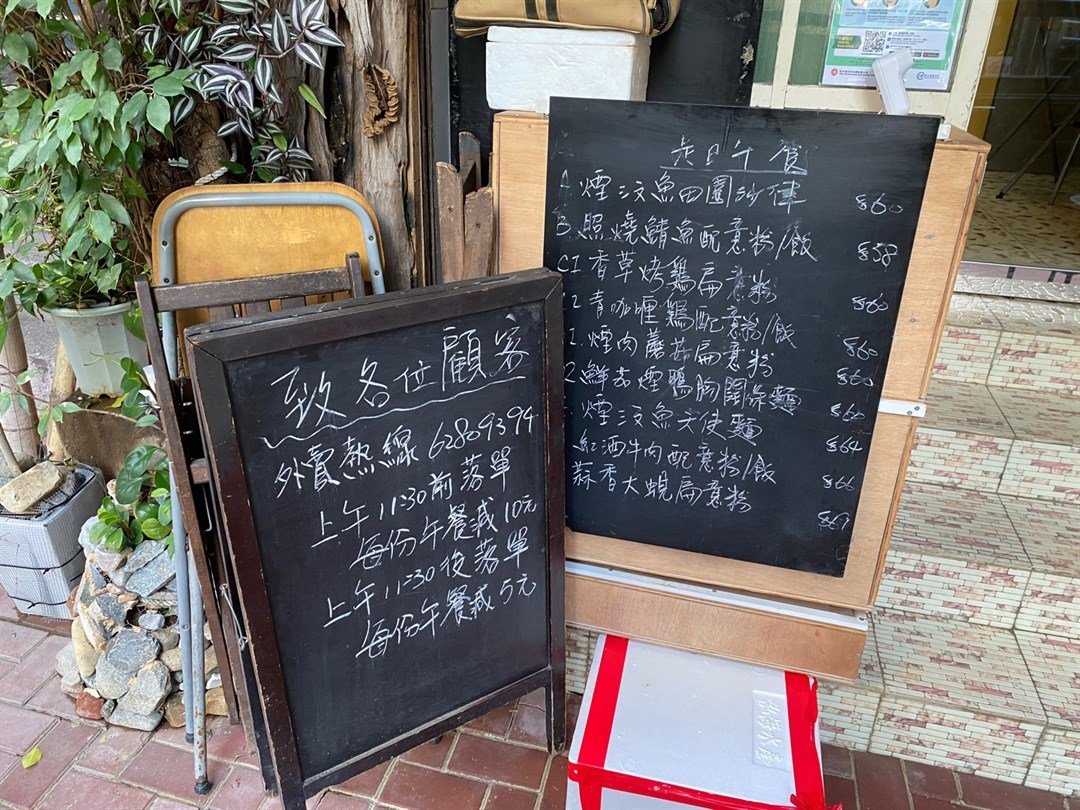 致各位顧客
外賣熱線 62809394
上午 11:30 前落單
每份午餐減 10元
上午 11:30 後落單
每份午餐減 5元
是日午食
A.煙汶魚田園沙律 $60
B.照燒鯖魚配意粉/飯 $58
C1香草烤鷄扁意粉 $60
2青咖喱鷄配意粉/飯 $60
1.煙肉蘑菇扁意粉 $60
2鮮茄煙鴨胸 麵 $60
煙汶魚天使麵 $64
紅酒牛肉配意粉/飯 $66
蒜香大蜆扁意粉